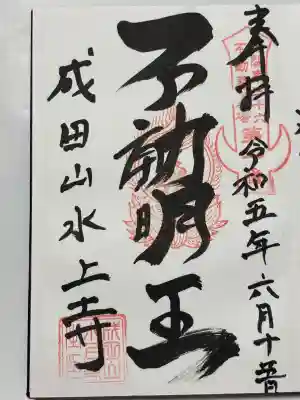 奉拝
令和五年六月十五日
不動明王
成田山水上寺